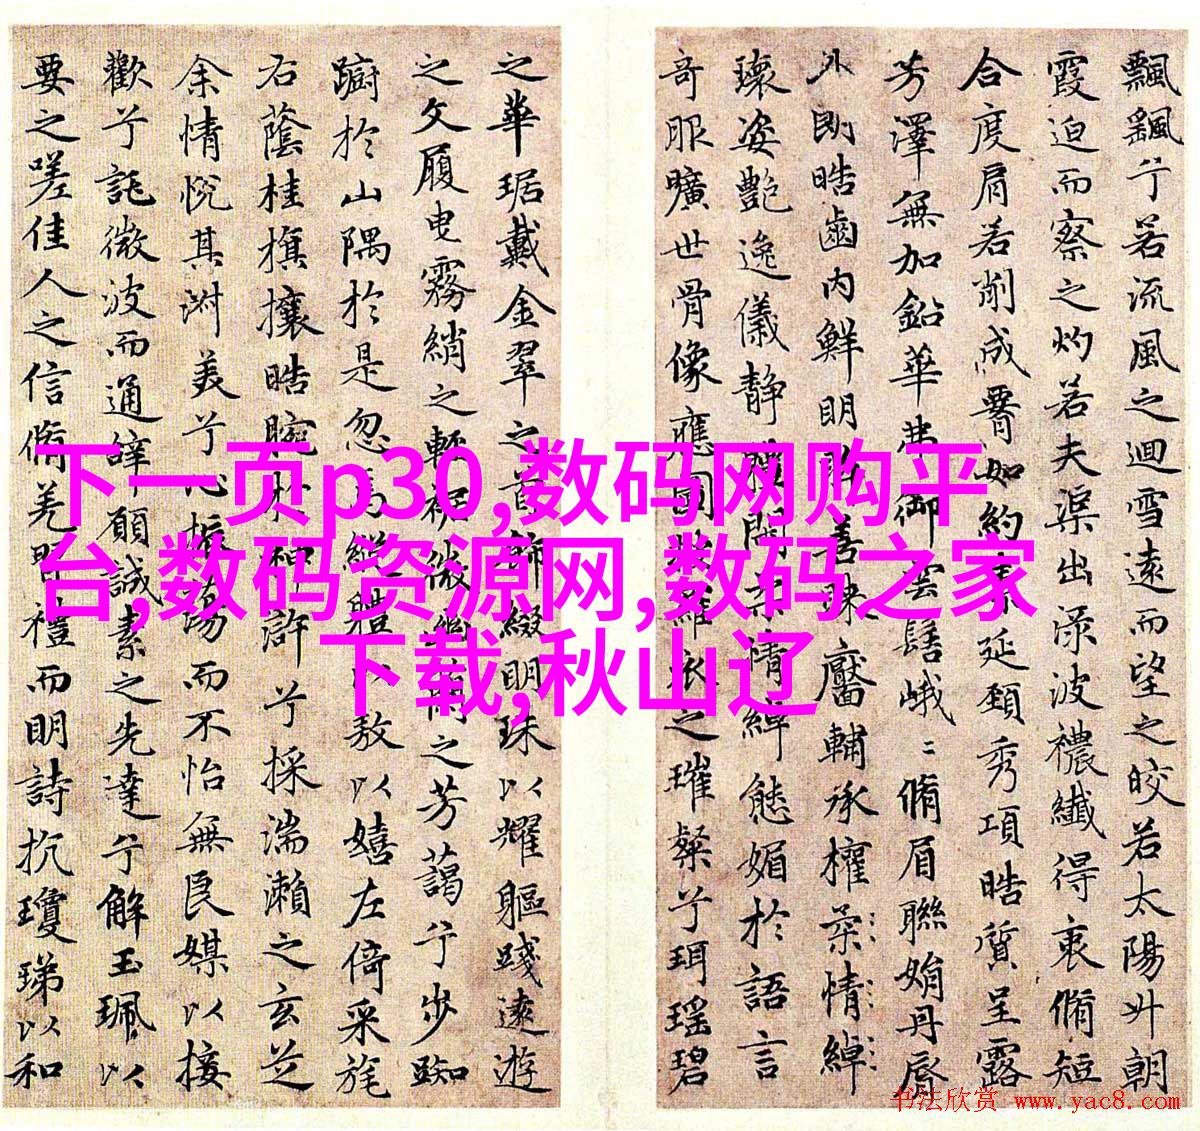 飄飖兮若流風之迴雪遠而望之皎若太陽升朝
霞迫而察之灼若夫渠出淥波襛纖得衷脩短
合度肩若削成𦝫如約素延頸秀項皓質呈露
芳澤無加鉛華弗御雲髻峨〻脩眉聯娟丹脣
外朗皓齒內鮮明眸善睞靨輔承權柔情綽
瓌姿艷逸儀静體閑柔情綽態媚於語言
奇服曠世骨像應圖披羅衣之璀粲兮珥瑶碧
之華琚戴金翠之首飾綴明珠以耀軀踐遠遊
之文履曳霧綃之輕裾微幽蘭之芳藹兮步踟
蹰於山隅於是忽焉縱體以敖以嬉左倚采旄
右蔭桂旗攘皓腕於神滸兮採湍瀨之玄芝
余情悅其淑美兮心振蕩而不怡無良媒以接
歡兮託微波而通辭願誠素之先達兮解玉珮以
要之嗟佳人之信脩羌習禮而明詩抗瓊珶以和
下一页p30,数码网购平
台,数码资源网,数码之家
下载,秋山辽
书法欣赏 www.yac8.com